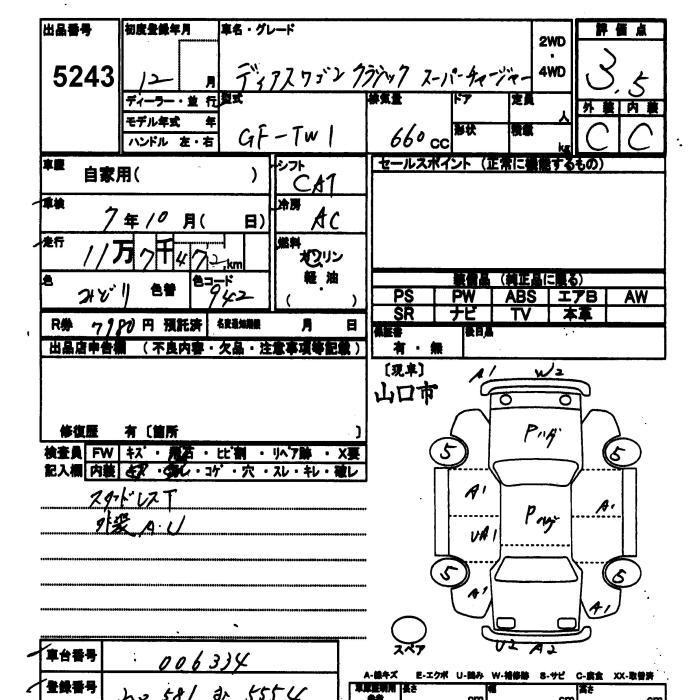 出品番号 初度登録年月 車名・グレード 評価点
5243 12 月 ディアスワゴン クラシック スーパーチャージャー 2WD ・ 4WD 3.5
ディーラー・並行 型式 排気量 ドア 定員 人 外装 内装
モデル年式 年 GF-TW1 660 CC 形状 積載 kg C C
ハンドル 左・右
車歴 自家用( ) シフト CAT セールスポイント (正常に機能するもの)
車検 7年10月( 日) 冷房 AC
走行 11万7千472km 燃料 ガソリン ・ 軽油 ( )
色 みどり 色替 色コード 942 装備品 (純正品に限る)
PS PW ABS エアB AW
SR ナビ TV 本革
R券 7980円 預託済 名変通知期限 月 日 保証書 有・無 後日品
出品店申告欄 (不良内容・欠品・注意事項等記載)
[現車]
山口市
修復歴 有 [箇所 ]
検査員 FW キズ・飛石・ヒビ割・リペア跡・X要
記入欄 内装 コゲ・穴・スレ・キレ・破レ
スタッドレスT
外装 A.U
A1 W2
Pハゲ
5 5
A1 A1
Pハゲ
UA1
5 5
A1 A1
スペア U2 A2
車台番号 006334
A-線キズ E-エクボ U-凹み W-補修跡 S-サビ C-腐食 XX-取替済
登録番号 581 5554
長さ cm 幅 cm 高さ cm